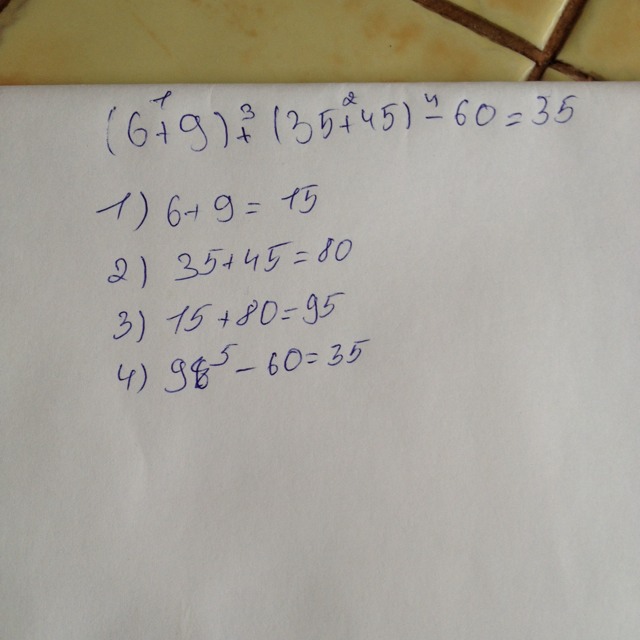 (6+9)+(35+45)-60=35
1) 6+9=15
2) 35+45=80
3) 15+80=95
4) 95-60=35